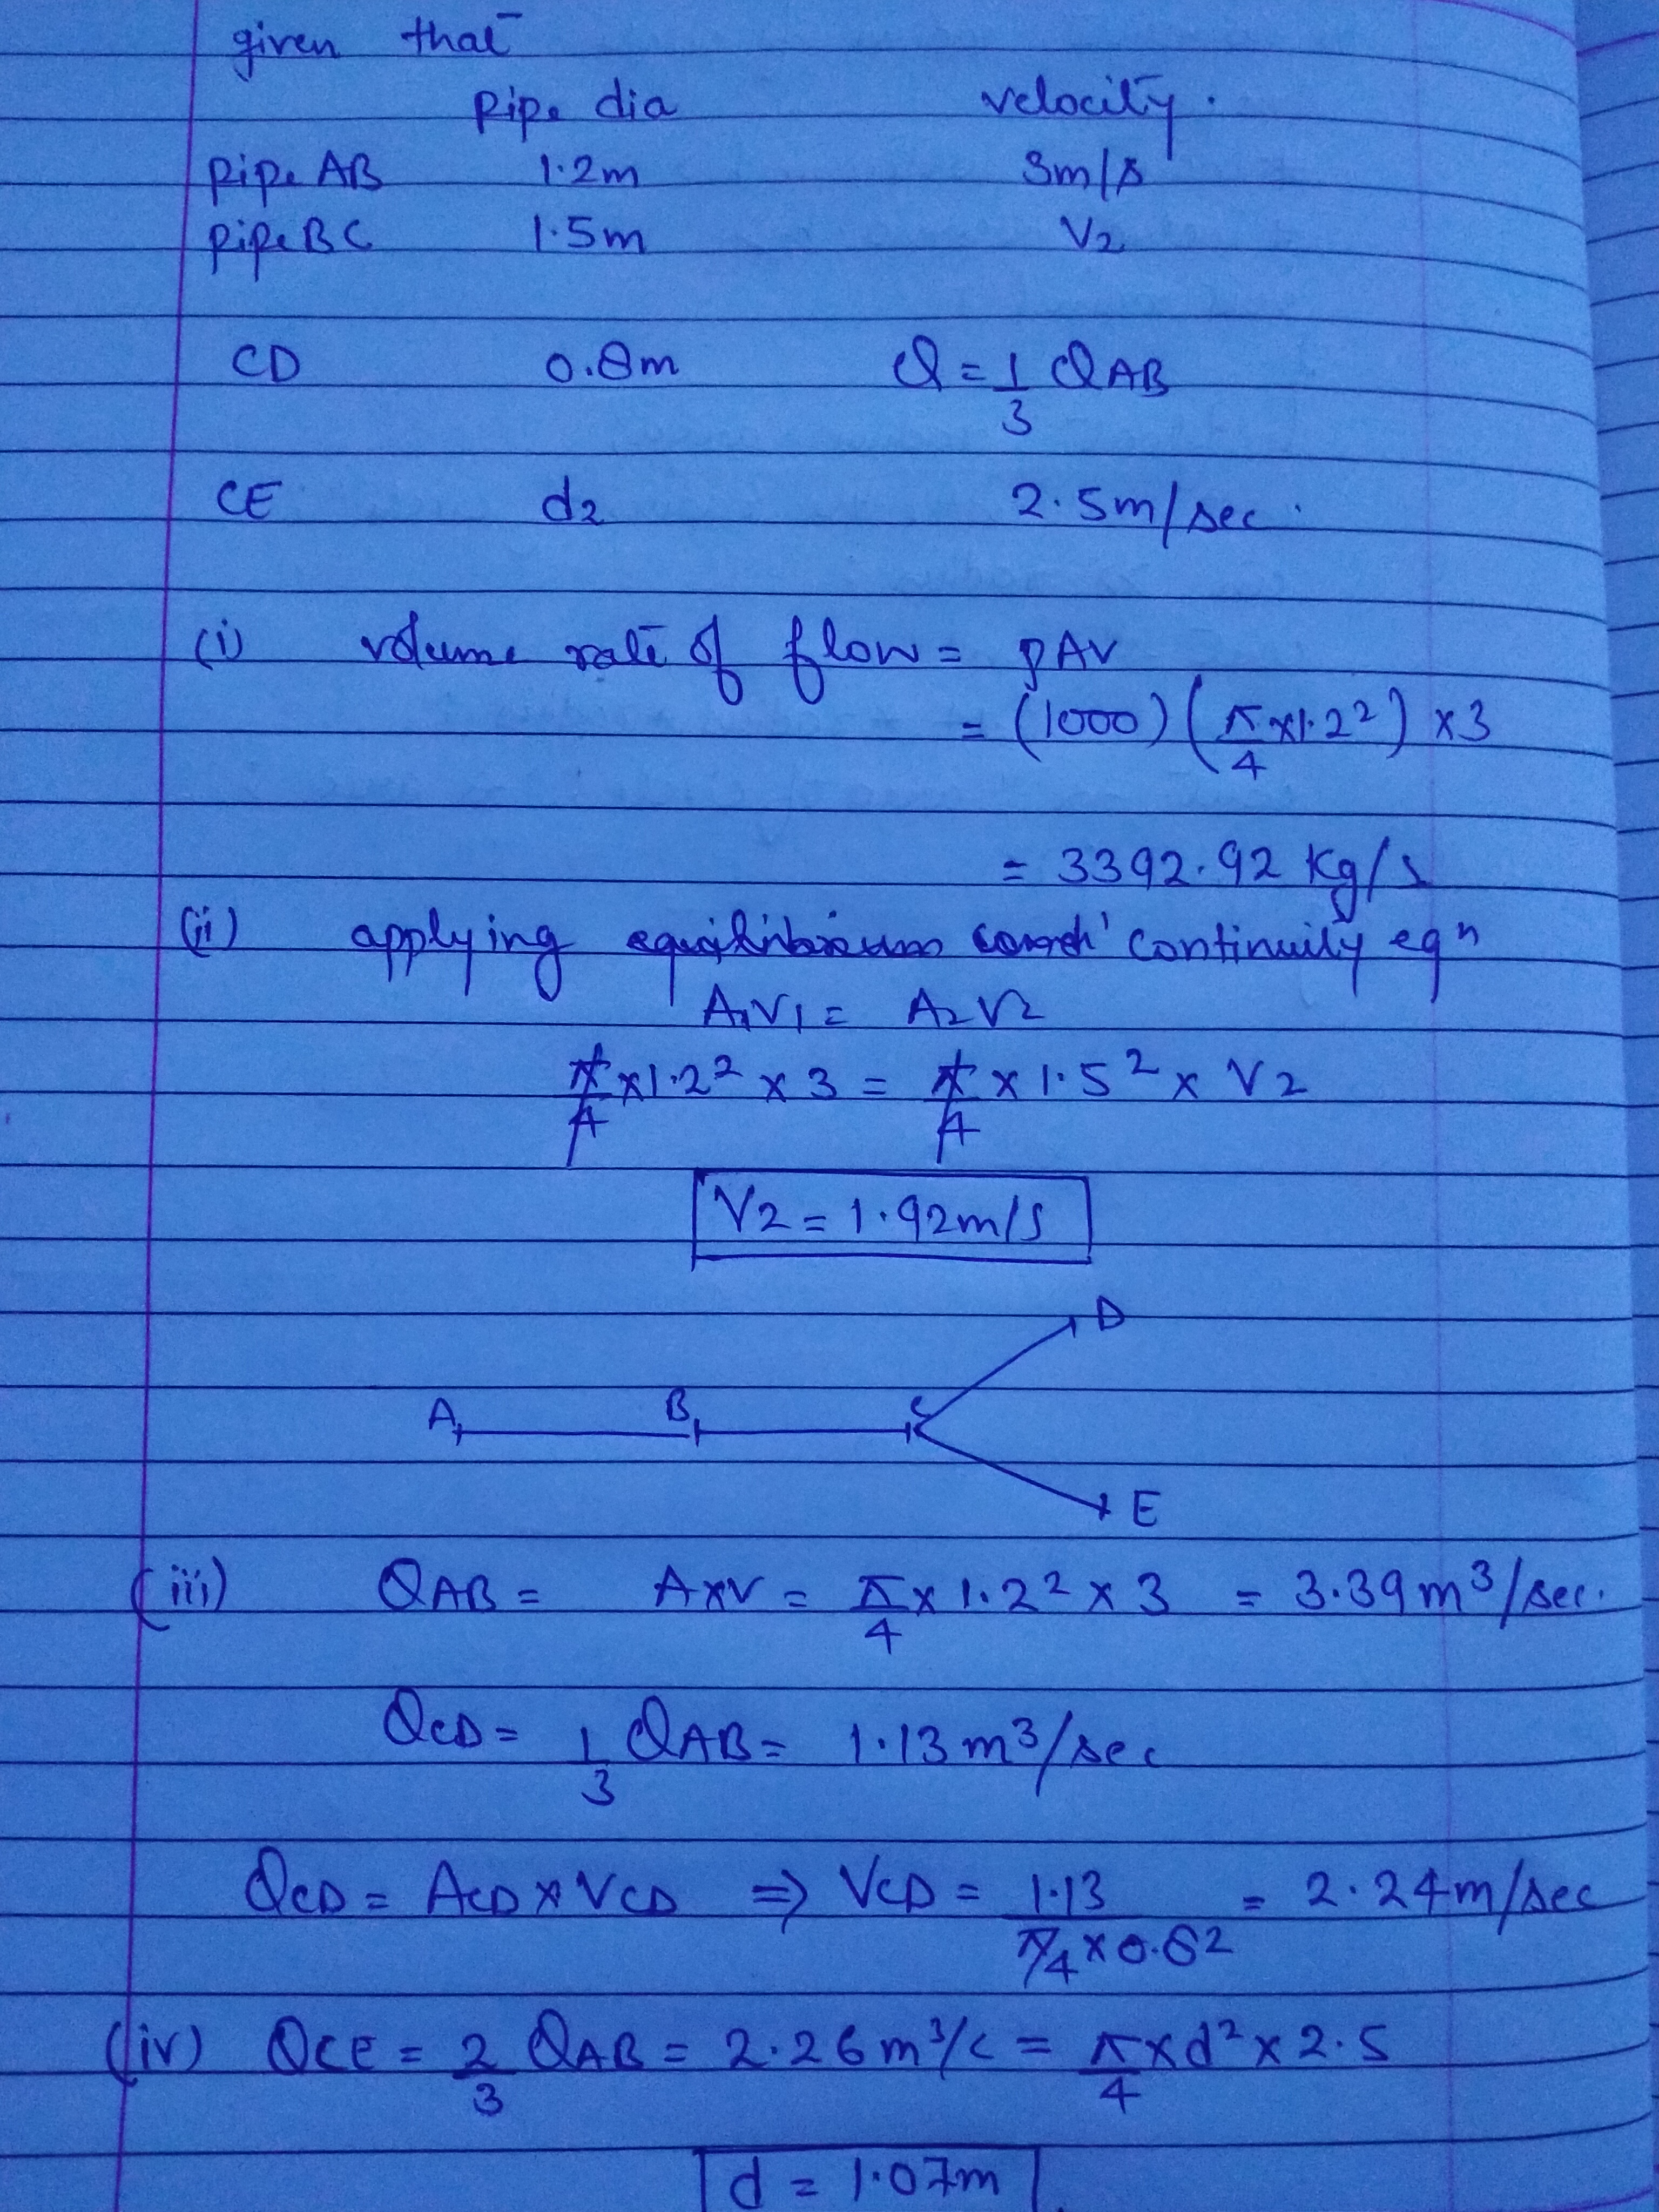 given that
pipe dia velocity.
pipe AB 1.2m 3m/s
pipe BC 1.5m V2
CD 0.8m Q = 1/3 QAB
CE d2 2.5m/sec.
(i) volume rate of flow = ρAV
= (1000) (π/4 x1.2²) x3
= 3392.92 Kg/s
(ii) applying continuity eqⁿ
A1V1 = A2V2
π/4 x1.2² x 3 = π/4 x 1.5² x V2
V2 = 1.92m/s
D
A B C
E
(iii) QAB = AxV = π/4 x 1.2² x 3 = 3.39 m³/sec.
QCD = 1/3 QAB = 1.13 m³/sec
QCD = ACD x VCD ⇒ VCD = 1.13 / π/4 x 0.8² = 2.24m/sec
(iv) QCE = 2/3 QAB = 2.26 m³/s = π/4 x d² x 2.5
d = 1.07m